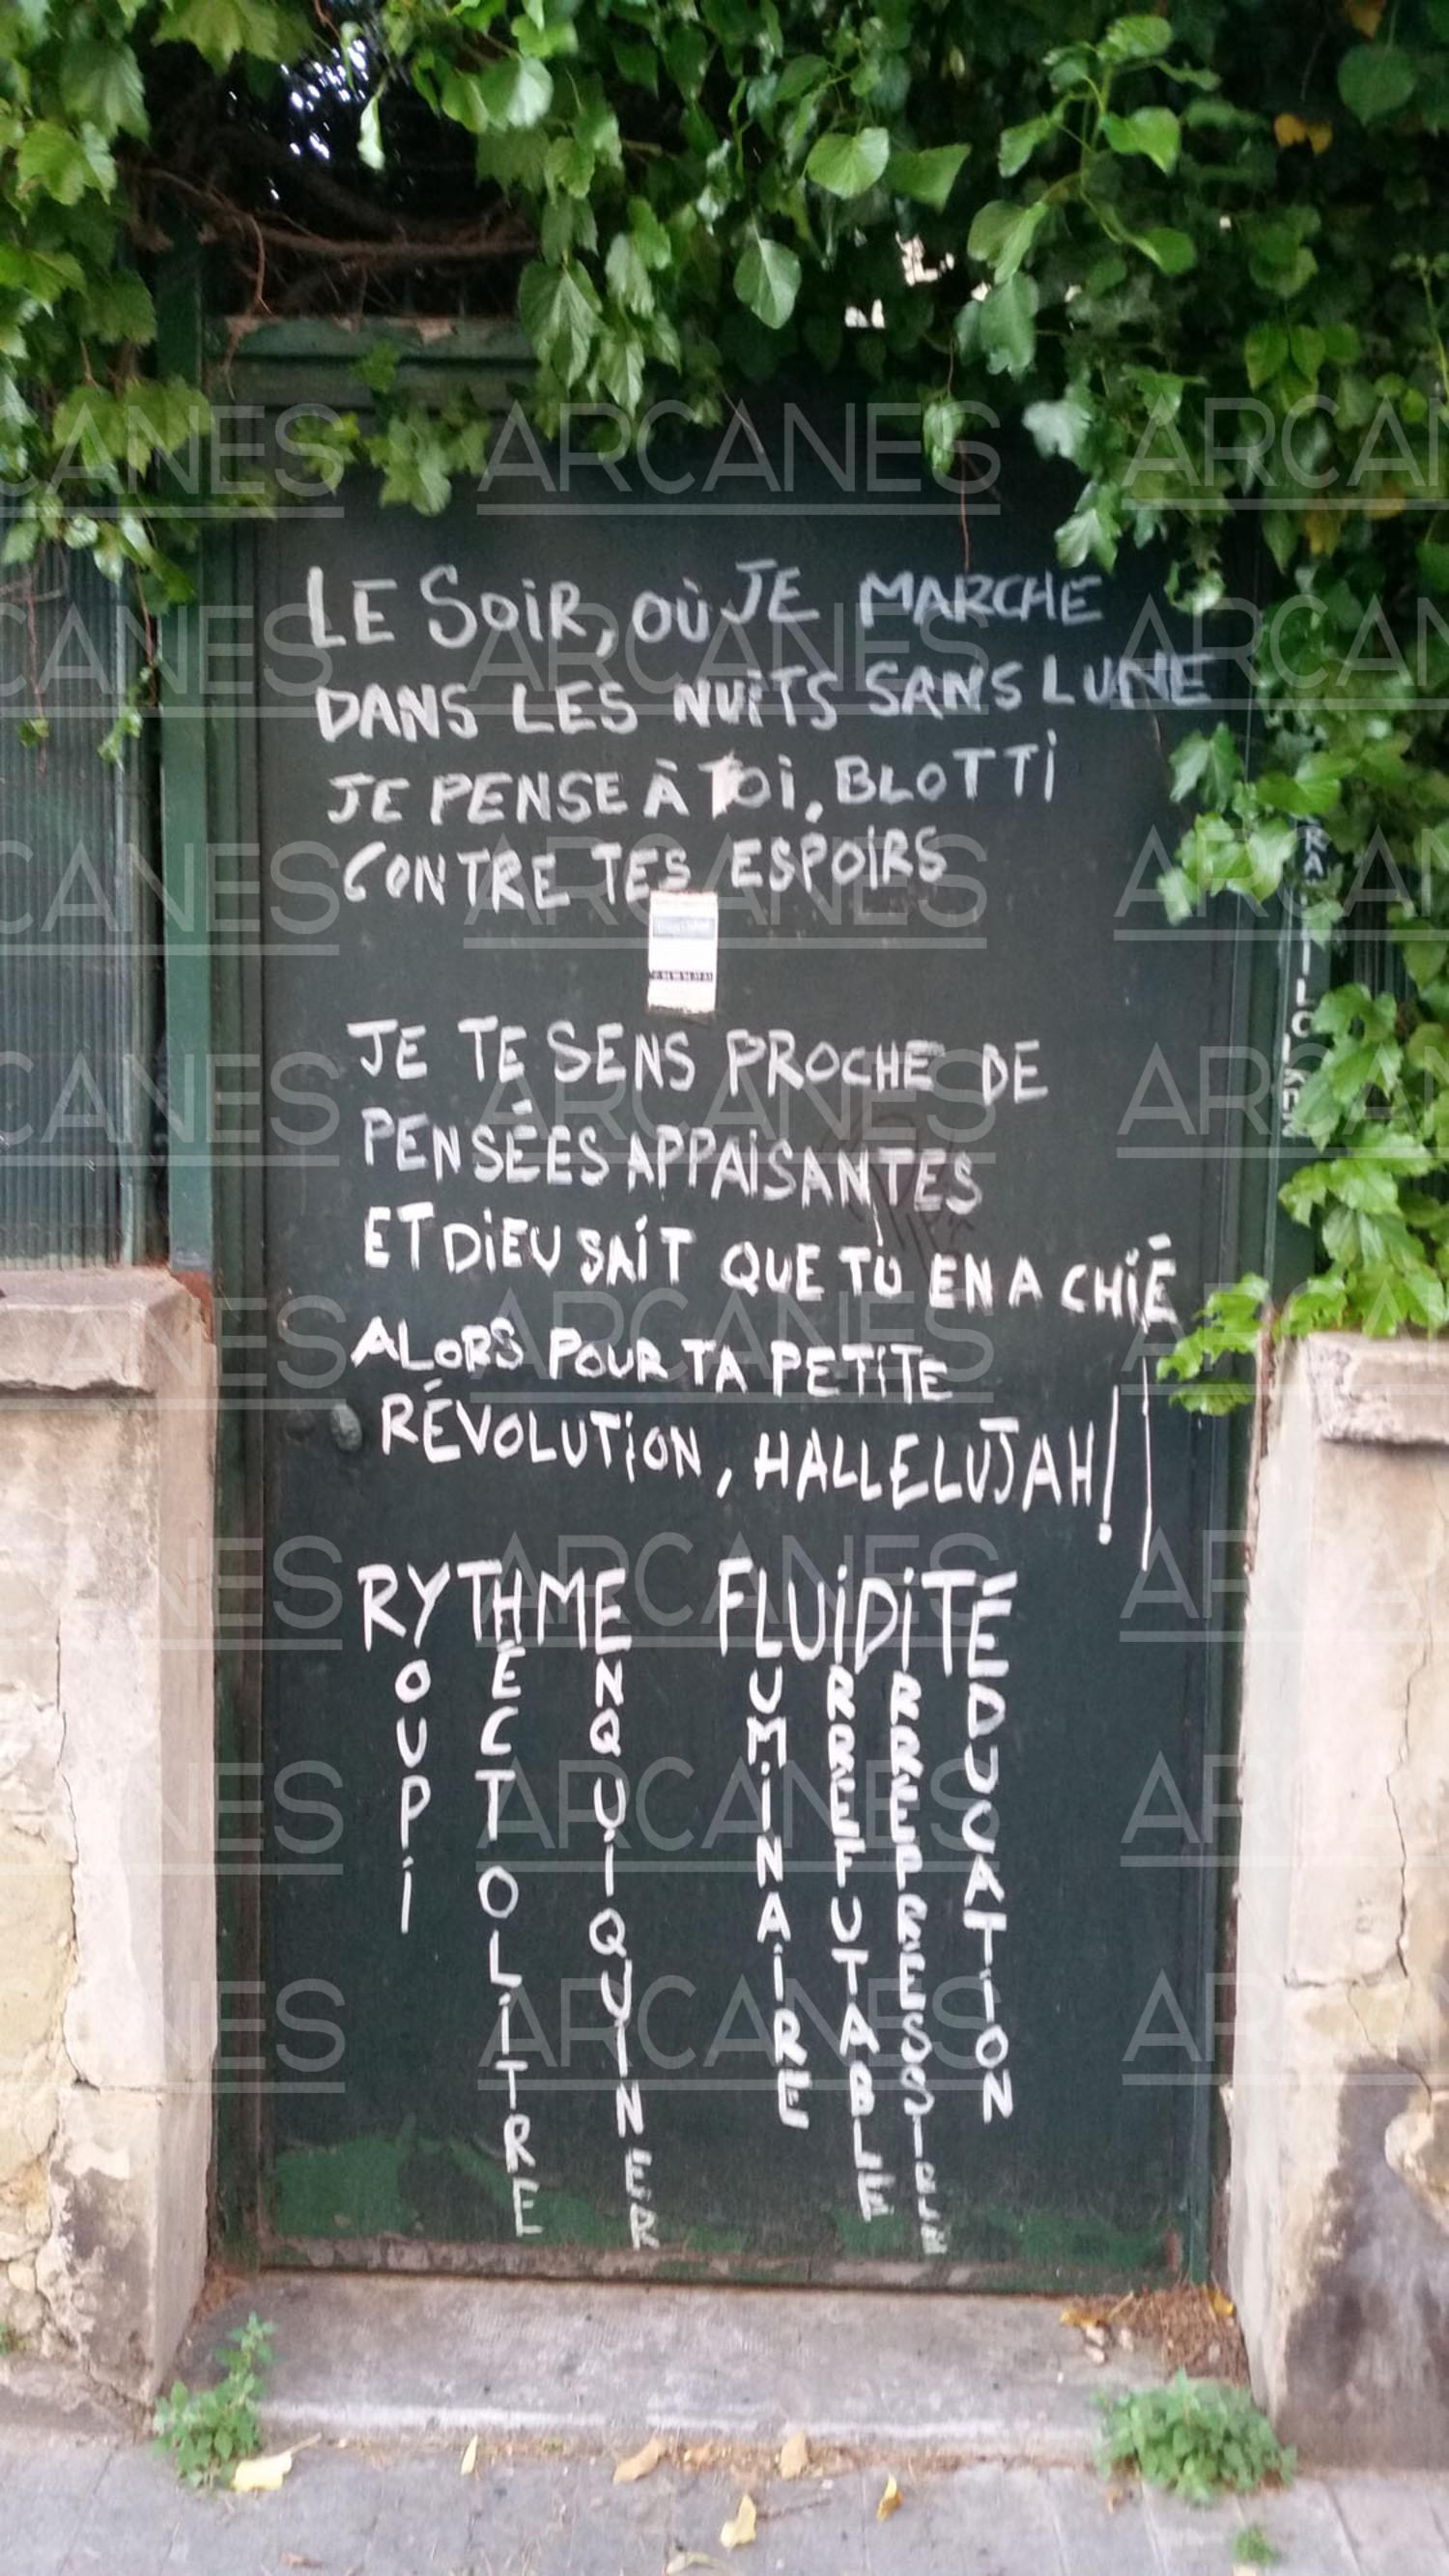 LE SOIR, OÙ JE MARCHE
DANS LES NUITS SANS LUNE
JE PENSE À TOI, BLOTTI
CONTRE TES ESPOIRS
JE TE SENS PROCHE DE
PENSÉES APPAISANTES
ET DIEU SAIT QUE TU EN A CHIÉ
ALORS POUR TA PETITE
RÉVOLUTION, HALLELUJAH!
RYTHME FLUIDITÉ
YOUPI
HÉCTOLITRE
ENQUIQUINER
LUMINAIRE
IRRREFUTABLE
IRRREPRESSIBLE
ÉDUCATION
ARCANES